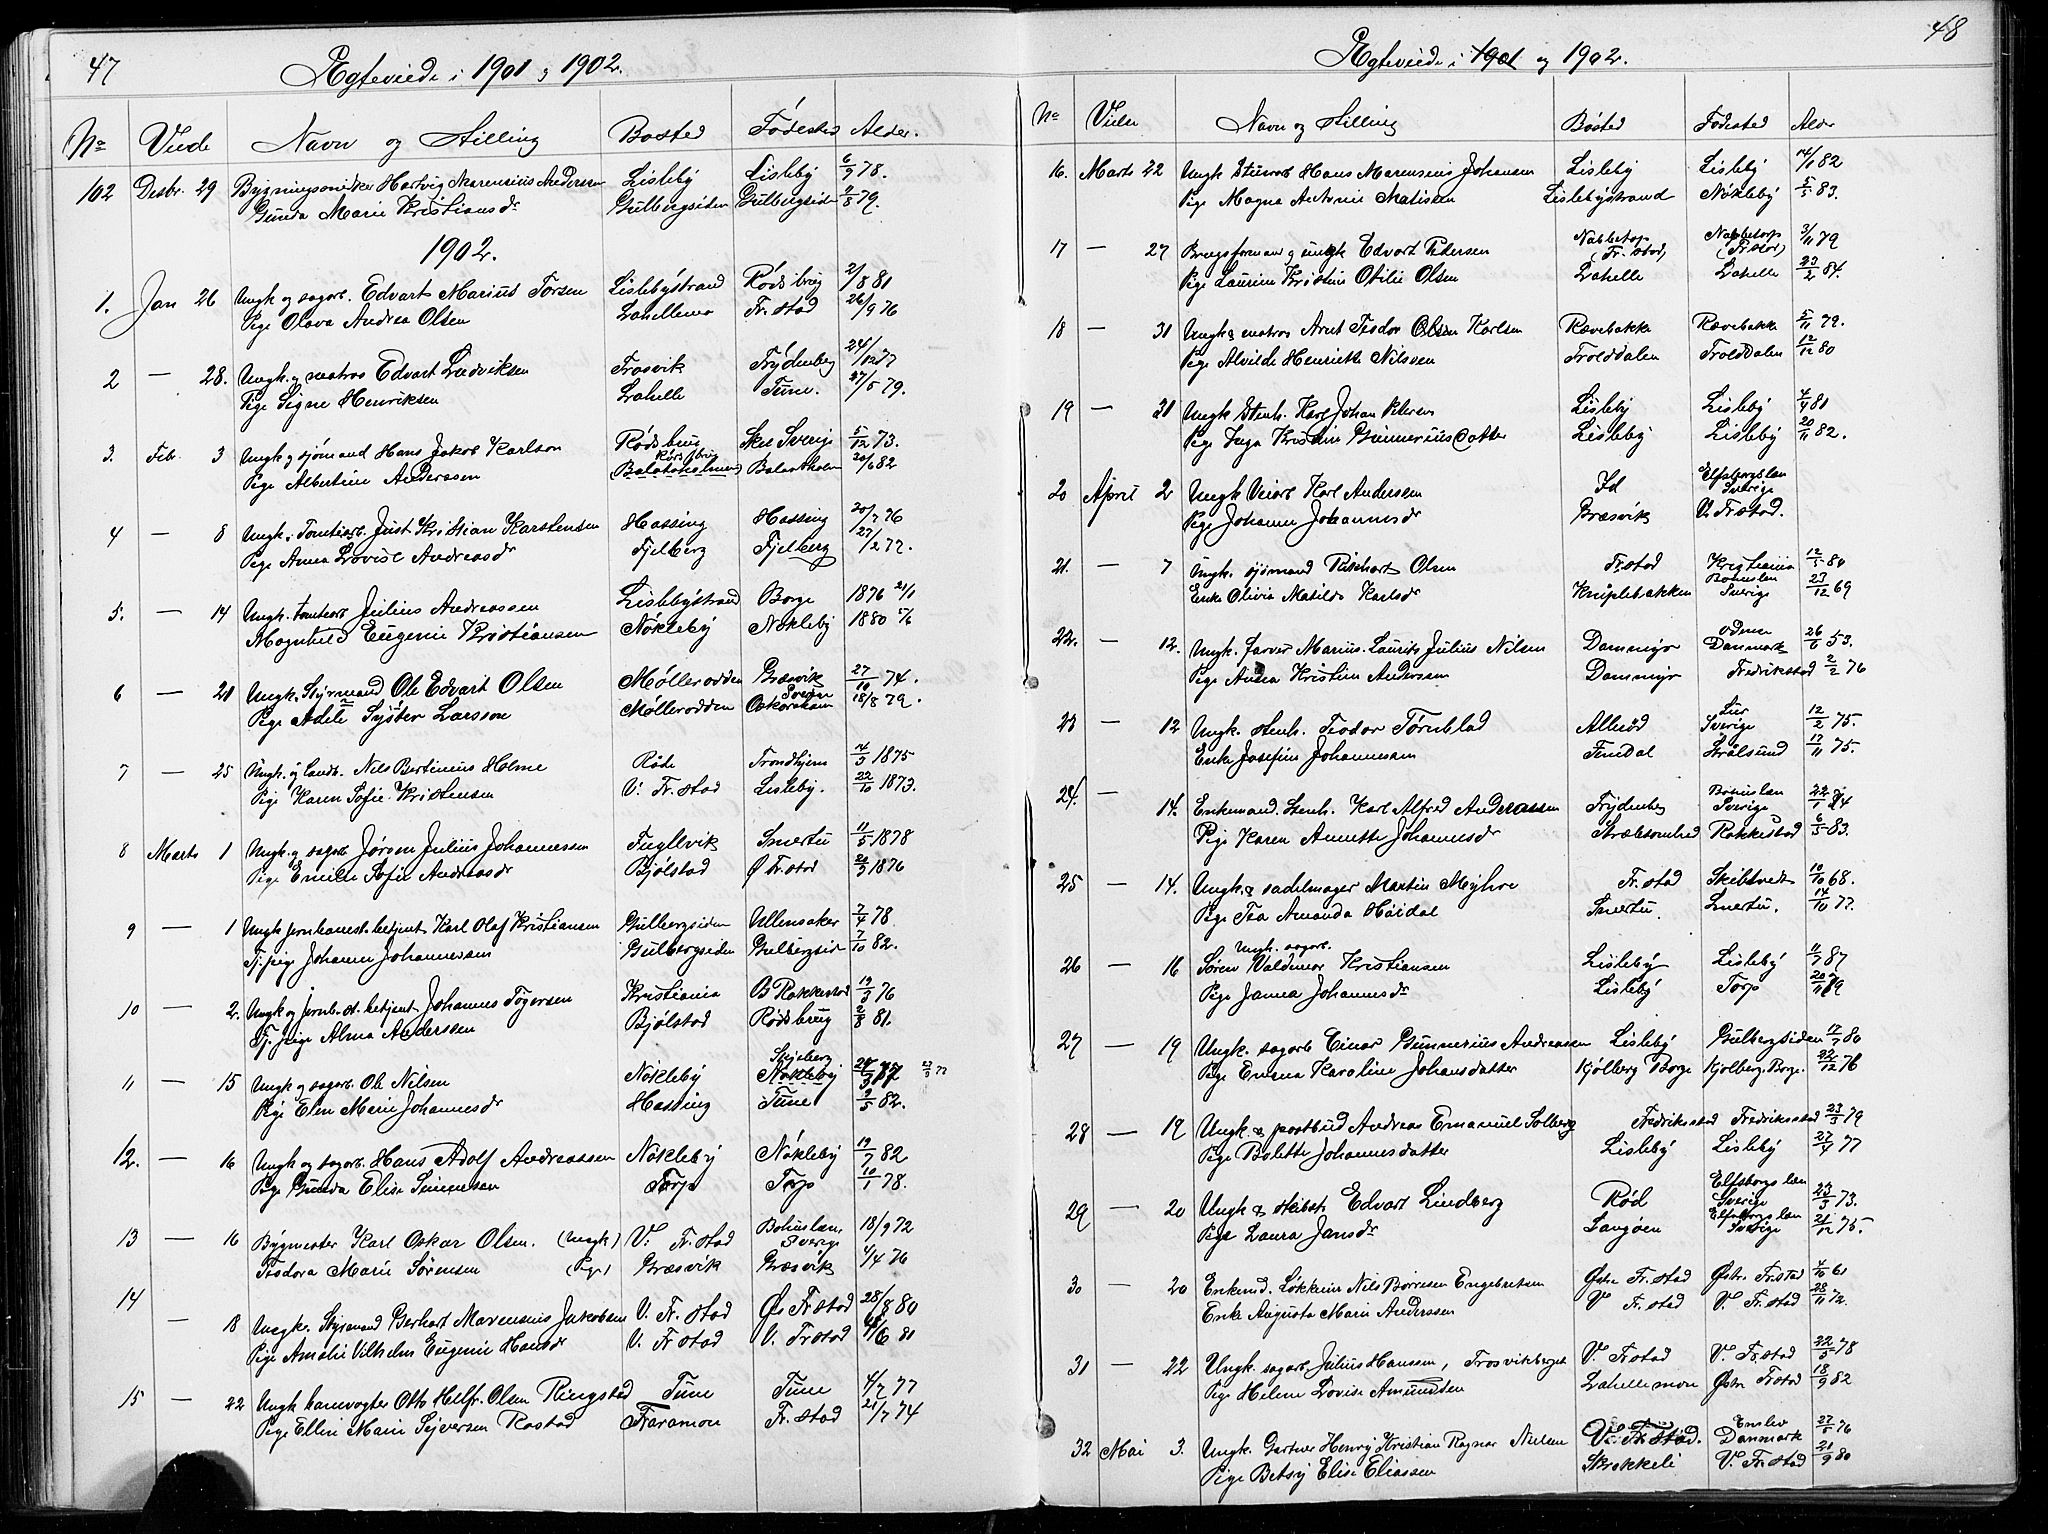 47
Ægteviede i 1901 og 1902.
No Viede Navn og Stilling Bosted Fødested Alder.
102 Desbr. 29 Bygningssnidker Hartvig Marensius Anderssen Lisleby Lisleby 6/9 78.
Gunda Marie Kristiansdr Gulbergsiden Gulbergsiden 9/8 79.
1902.
1. Jan 26 Ungk og sagarb. Edvart Marius Torsen Lislebystrand Rødsbrug 2/8 81
Pige Olava Andrea Olsen Lahellemo Fr.stad 26/9 76
2 — 28. Ungk. og matros Edvart Ludviksen Trosvik Frydenberg 24/10 77
Pige Signe Henriksen Lahelle Tune. 27/5 79.
3. Feb. 3 Ungk og sjømand Hans Jakob Karlson Rødsbrug Skee Sverige 5/12 73.
Rødsbrug
Pige Albertine Anderssen 20/6 82
4 — 8 Ungk. Tomtearb. Just Kristian Karstensen Hassing Hassing 20/7 76
Pige Anna Lovise Andreasdr Fjelberg Fjelberg 27/2 72.
5. — 14 Ungk. tomtearb Julius Andreassen Lislebystrand Borge 1876 21/1
Magnhild Eugenie Kristiansen Nøkleby Nøkleby 1880 5/6
6 — 21 Ungk. Styrmand Ole Edvart Olsen Møllerodden Græsvik 27/10 74.
Pige Adele Syster Larsson Møllerodden Oskarshamn Sverige 18/8 79.
7 — 25 Ungk. og landb. Nils Bertinius Holme Røde Trondhjem 4/3 1875
Pige Karen Sofie Kristensen V. Fr.stad Lisleby. 22/10 1873.
8 Marts 1 Ungk. og sagarb Jørgen Julius Johannessen Fuglevik Smertu 11/5 1878
Pige Emilie Sofie Andreasdr Bjølstad Ø Fr.stad 20/3 1876
9 — 1 Ungk jernbanest. betjent Karl Olaf Kristiansen Gulbergsiden Ullensaker 7/4 78
Tj. pige Johanne Johannessen Gulbergsiden Gulbergsid 7/10 82.
10 — 2. Ungk og jernb. st. betjent Johannes Togersen Kristiania B Rakkestad 19/3 76
Tj. pige Alma Anderssen Bjølstad Rødsbrug 2/8 81.
11 — 15 Ungk og sagarb. Ole Nilsen Nøkleby Skjeberg Nøkleby 77
Pige Elen Marie Johannesdr Hassing Tune 9/5 82.
12. — 16 Ungk og sagarb. Hans Adolf Andreassen Nøkleby Nøkleby 19/7 82
Pige Gunda Elise Simensen Torp Torp 10/1 78.
13 — 16 Bygmester Karl Oskar Olsen. (Ungk) V. Fr.stad Bohuslæn Sverige 18/9 72
Teodora Marie Sørensen (Pige) Græsvik Græsvik 4/4 76
14 — 18 Ungk. Styrmand Gerhart Marensius Jakobsen V. Fr. stad Øs Fr stad 28/8 80
Pige Amalie Vilhelm Eugenie Hansdr V. Fr stad V. Fr stad 81
15 — 22 Ungk banevogter Otto Helfr. Olsen Ringstad Tune Tune 4/7 77
Pige Elline Marie Syversen Rostad Faramon Fr. stad 21/7 74
48
Ægteviede i 1901 og 1902.
No Viede Navn og Stilling Bosted Fødested Alder
16. Marts 22 Ungk Stuerarb Hans Marensius Johansen Lisleby Lisleby 14/1 82
Pige Magna Antonie Matisen Lislebystrand Nøkleby 5/5 83.
17 — 27 Brugsformand og ungk Edvart Pedersen Nabbetorp (Fr. stad) Nabbetorp (Fr.stad) 3/11 79
Pige Laurine Kristine Otilie Olsen Lahelle Lahelle 23/2 84.
18 — 31 Ungk & matros Arnt Teodor Olsen Karlsen Rævebakke Rævebakke 5/11 79.
Pige Alvilde Henriette Nilsen Trolddalen Trolddalen 12/12 80
19 — 31 Ungk Stenh. Karl Johan Petersen Lisleby Lisleby 4/4 81
Pige Inga Kristine Gunneriusdatter Lisleby Lisleby 20/11 82.
20 April 2 Ungk Veiarb Karl Anderssen Id Elfsborgslæn Sverige
Pige Johanne Johannesdr Græsvik V. Fr.stad.
21. — 7 Ungk. sjømand Rikhart Olsen Fr.stad Kristiania 12/5 80
Enke Olivia Matilde Karlsdr Kniplebakken Bohuslen Sverige 23/12 69
22. — 12. Ungk. farver Marius Laurits Julius Nilsen Dammyr Odense Danmark 26/6 53.
Pige Anna Kristine Anderssen Dammyr Fredrikstad 2/2 76
23 — 12 Ungk. stenh. Teodor Törnblad Allerød Lur Sverige 12/2 75.
Enke Josefine Johannessen Femdal Strålsund 17/11 75.
24. — 14. Enkemand. Stenh. Karl Alfred Andreassen Frydenberg Bohuslan Sverige
Pige Karen Annette Johannesdr Rakkestad 6/5 83.
25 — 14. Ungk. & sadelmager Martin Myhre Fr. stad Skibtvet 10/10 68.
Pige Tea Amanda Høidal Smertu. Smertu. 14/10 77.
Ungk. sagarb.
26 — 16 Søren Valdemar Kristiansen Lisleby Lisleby 11/7 87
Pige Janna Johannesdr Lisleby Torp 20/11 79
27 — 19 Ungk. sagarb Einar Gunnerius Andreassen Lisleby Gulbergsiden 17/7 80
Pige Emma Karoline Johansdatter Kjølberg Borge Kjølberg Borge. 22/12 76
28 — 19 Ungk & postbud Andreas Emanuel Solberg Fredriksstad Fredriksstad 23/3 79
Pige Bolette Johannesdatter Lisleby Lisleby 27/4 77
29 — 20 Ungk & skibst Edvart Lindberg Rød Elfsborgs len Sverige 23/3 73.
Pige Laura Jansdr Langøen Elfsborgs len Sverige 21/12 75.
30 — 20 Enkemd. Løkkeim Nils Børresen Engebretsen Østr. Fr. stad Østr. Fr.stad 4/10 61
Enke Augusta Marie Anderssen V Fr. stad V. Fr. stad 28/11 72.
31 — 22 Ungk. sagarb Julius Hanssen, Trosvikberget V. Fr.stad V. Fr.stad 22/5 78
Pige Helene Lovise Amundsen Lahellemon Østr Fr.stad 18/9 82
32 Mai 3. Ungk. Gartner Henry Kristian Ragnar Nielsen V. Fr. stad. Emlev Danmark 27/5 76
Pige Betsy Elise Eliassen Skrokkeli V. Fr. stad 21/9 80